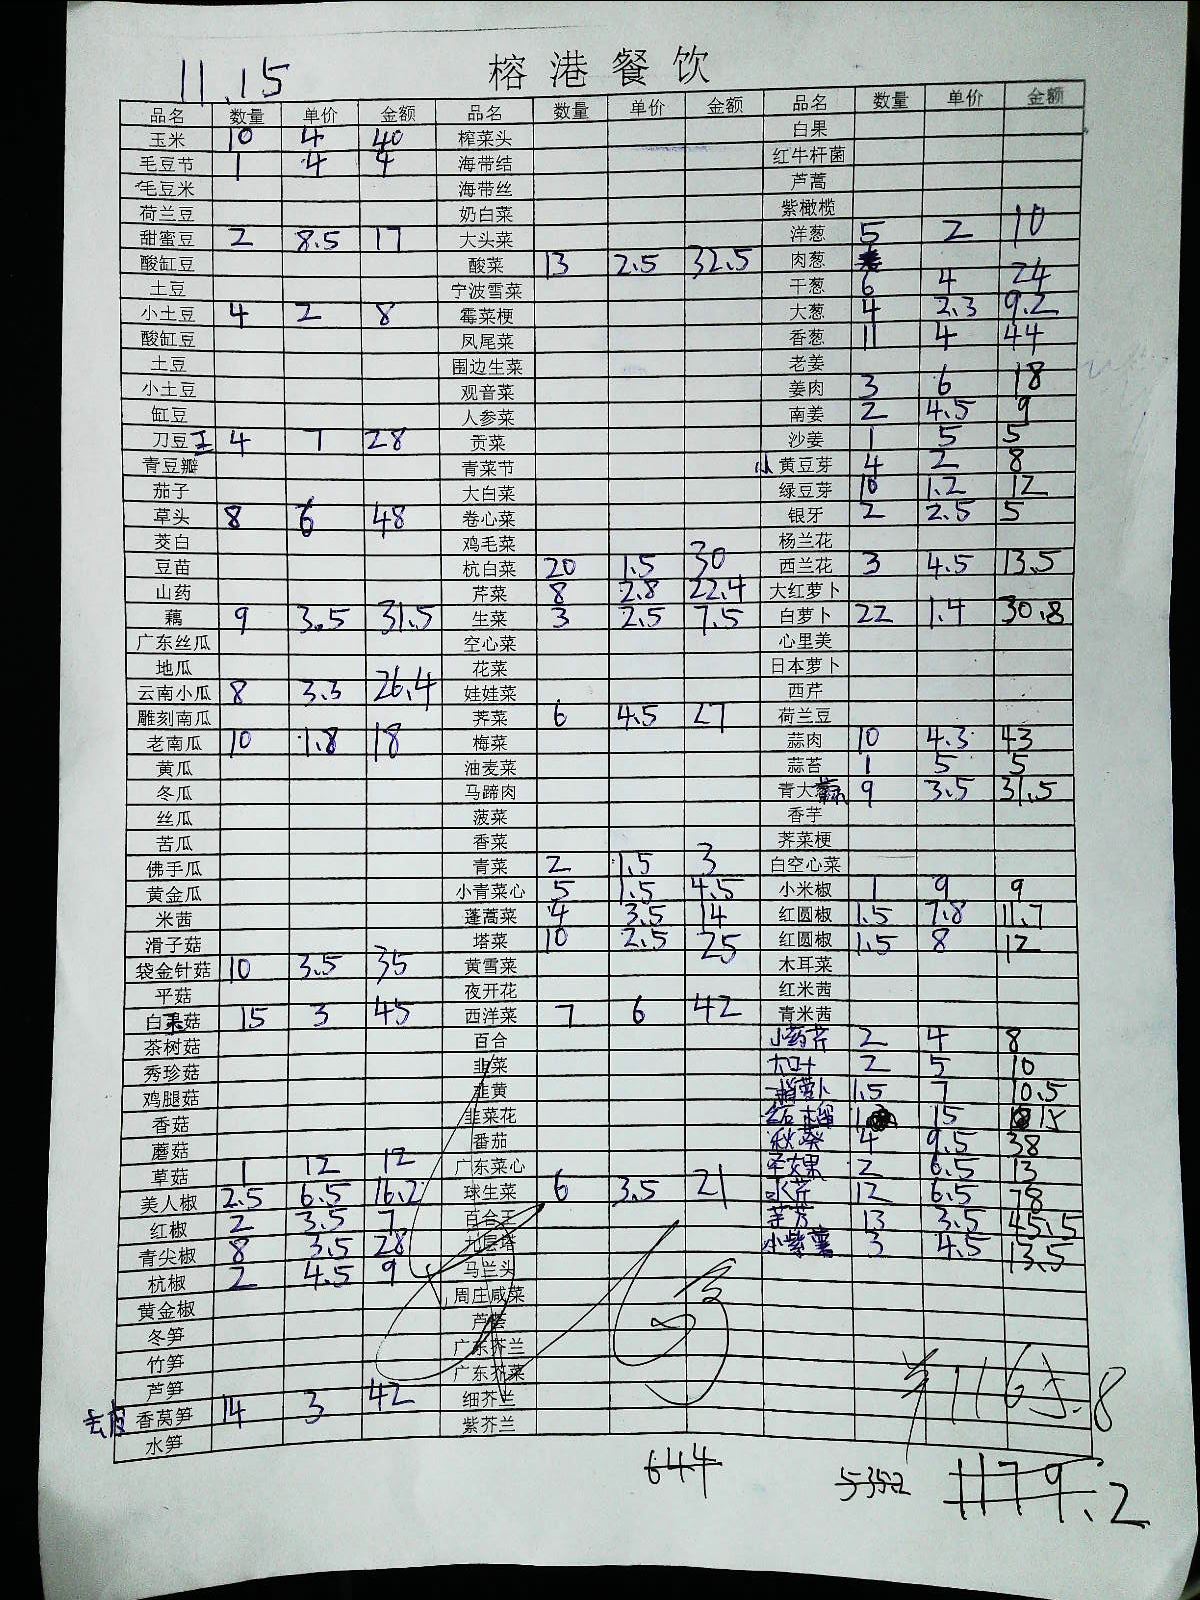 11.15
榕港餐饮
品名 数量 单价 金额 品名 数量 单价 金额 品名 数量 单价 金额
玉米 10 4 40 榨菜头 白果
毛豆节 1 4 4 海带结 红牛杆菌
毛豆米 海带丝 芦蒿
荷兰豆 奶白菜 紫橄榄
甜蜜豆 2 8.5 17 大头菜 洋葱 5 2 10
酸缸豆 酸菜 13 2.5 32.5 肉葱
土豆 宁波雪菜 干葱 6 4 24
小土豆 4 2 8 霉菜梗 大葱 4 2.3 9.2
酸缸豆 凤尾菜 香葱 11 4 44
土豆 围边生菜 老姜
小土豆 观音菜 姜肉 3 6 18
缸豆 人参菜 南姜 2 4.5 9
刀豆 4 7 28 贡菜 沙姜 1 5 5
青豆瓣 青菜节 小黄豆芽 4 2 8
茄子 大白菜 绿豆芽 10 1.2 12
草头 8 6 48 卷心菜 银牙 2 2.5 5
茭白 鸡毛菜 杨兰花
豆苗 杭白菜 20 1.5 30 西兰花 3 4.5 13.5
山药 芹菜 8 2.8 22.4 大红萝卜
藕 9 3.5 31.5 生菜 3 2.5 7.5 白萝卜 22 1.4 30.8
广东丝瓜 空心菜 心里美
地瓜 花菜 日本萝卜
云南小瓜 8 3.3 26.4 娃娃菜 西芹
雕刻南瓜 荠菜 6 4.5 27 荷兰豆
老南瓜 10 1.8 18 梅菜 蒜肉 10 4.3 43
黄瓜 油麦菜 蒜苔 1 5 5
冬瓜 马蹄肉 青大 9 3.5 31.5
丝瓜 菠菜 香芋
苦瓜 香菜 荠菜梗
佛手瓜 青菜 2 1.5 3 白空心菜
黄金瓜 小青菜心 5 1.5 4.5 小米椒 1 9 9
米茜 蓬蒿菜 4 3.5 14 红圆椒 1.5 7.8 11.7
滑子菇 塔菜 10 2.5 25 红圆椒 1.5 8 12
袋金针菇 10 3.5 35 黄雪菜 木耳菜
平菇 夜开花 红米茜
白菇 15 3 45 西洋菜 7 6 42 青米茜
茶树菇 百合 小药芹 2 4 8
秀珍菇 韭菜 大口十 2 5 10
鸡腿菇 韭黄 萝卜 1.5 7 10.5
香菇 韭菜花 石榴 1 15 15
蘑菇 番茄 秋葵 4 9.5 38
草菇 1 12 12 广东菜心 圣女果 2 6.5 13
美人椒 2.5 6.5 16.2 球生菜 6 3.5 21 水芹 12 6.5 78
红椒 2 3.5 7 百合王 芋艿 13 3.5 45.5
青尖椒 8 3.5 28 九层塔 小紫薯 3 4.5 13.5
杭椒 2 4.5 9 马兰头
黄金椒 周庄咸菜
冬笋 芦荟
竹笋 广东芥兰
芦笋 广东芥菜
去皮香莴笋 14 3 42 细芥兰
水笋 紫芥兰
1165.8
644 535.2 1179.2